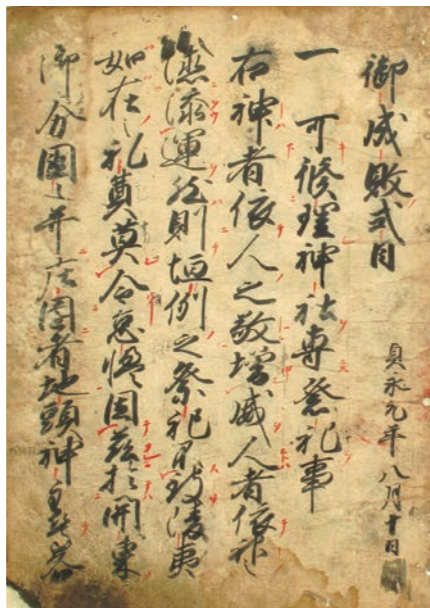 御成敗式目
貞永元年八月十日
一 可修理神社専祭祀事
右神者依人之敬増威人者依神
之徳添運然則恒例之祭祀不致陵夷
如在之礼奠莫令怠慢因茲於関東
御分國々并庄園者地頭神主等各